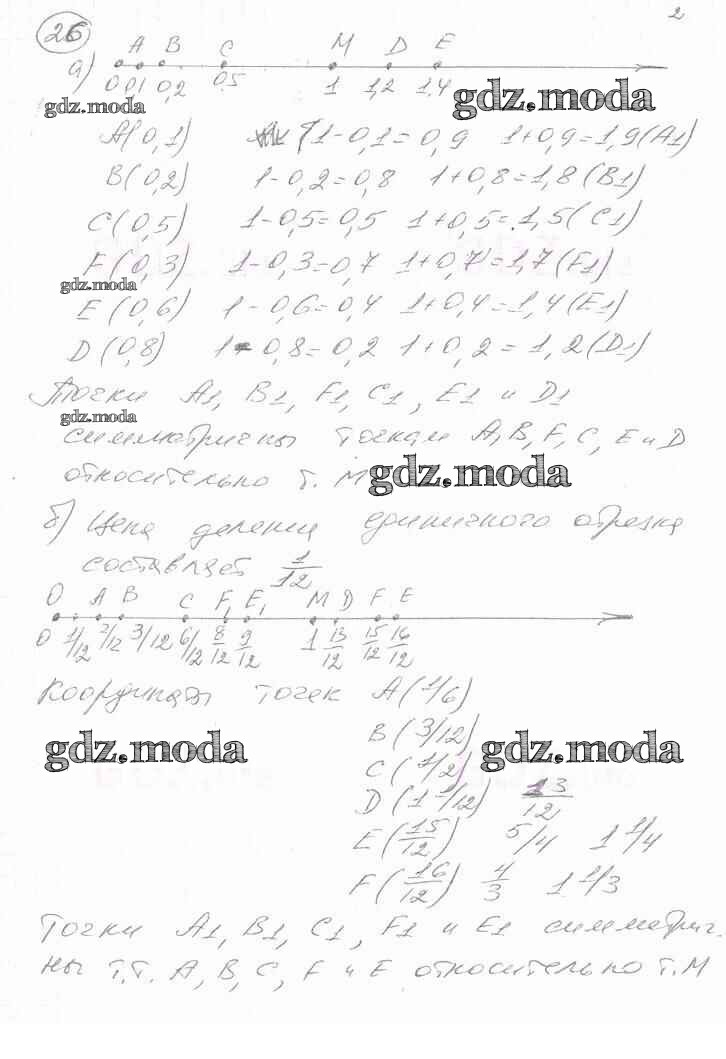 2
26
а)
A B C M D E
0 0,1 0,2 0,5 1 1,2 1,4
gdz.moda gdz.moda
A(0,1) 1-0,1=0,9 1+0,9=1,9(A1)
B(0,2) 1-0,2=0,8 1+0,8=1,8(B1)
C(0,5) 1-0,5=0,5 1+0,5=1,5(C1)
F(0,3) 1-0,3=0,7 1+0,7=1,7(F1)
gdz.moda
E(0,6) 1-0,6=0,4 1+0,4=1,4(E1)
D(0,8) 1-0,8=0,2 1+0,2=1,2(D1)
Точки A1, B1, F1, C1, E1 и D1
gdz.moda
симметричны точкам A, B, F, C, E и D
относительно т. M
gdz.moda
б) Цена деления единичного отрезка
составляет 1/12
O A B C F1 E1 M D F E
0 1/12 2/12 3/12 6/12 8/12 9/12 1 13/12 15/12 16/12
Координаты точек A(1/6)
B(3/12)
gdz.moda gdz.moda
C(1/2)
D(1 1/12) 13/12
E(15/12) 5/4 1 1/4
F(16/12) 4/3 1 1/3
Точки A1, B1, C1, F1 и E1 симметрич.
ны т.т. A, B, C, F и E относительно т. M